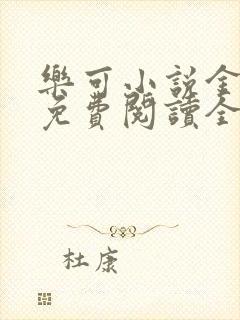 樂可小説全
免費閱讀全
杜康